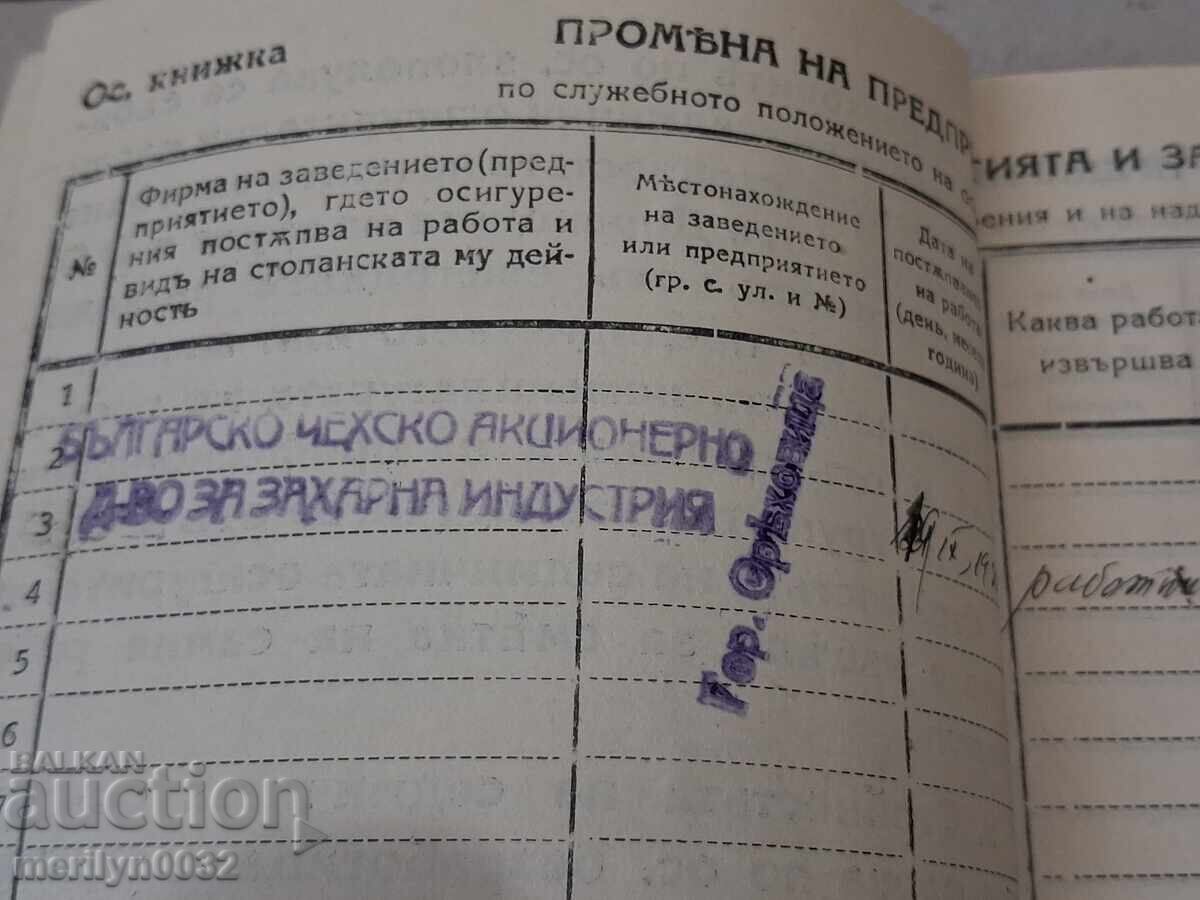 Ос. книжка
ПРОМѢНА НА ПРЕДПР
по служебното положението на ос
№
Фирма на заведението (пред-
приятието), гдето осигуре-
ния постѫпва на работа и
видъ на стопанската му дей-
ность
Мѣстонахождение
на заведението
или предприятието
(гр. с. ул. и №)
Дата на
постѫпването
на работа
(день, месецъ
година)
ТИЯТА И ЗА
ения и на над
Каква работа
извършва
1
2
БЪЛГАРСКО ЧЕХСКО АКЦИОНЕРНО
3
Д-ВО ЗА ЗАХАРНА ИНДУСТРИЯ
Гор. Орѣховица
IX, 19
4
5
6
7
BALKAN
auction
merilyn0032